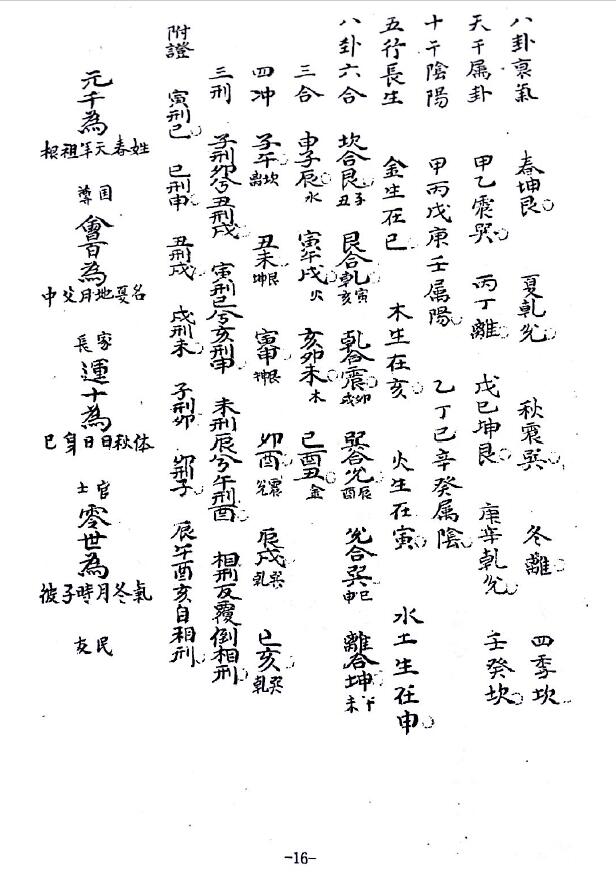 八卦衰氣 春坤艮 夏乾兌 秋震巽 冬離 四季坎
天干属卦 甲乙震巽 丙丁離 戊己坤艮 庚辛乾兌 壬癸坎
十干陰陽 甲丙戊庚壬属陽 乙丁己辛癸属陰
五行長生 金生在巳 木生在亥 火生在寅 水土生在申
八卦六合 坎合艮 子丑 艮合乾 寅亥 乾合震 卯戌 巽合兌 辰酉 兌合巽 巳申 離合坤 午未
三合 申子辰 水 寅午戌 火 亥卯未 木 巳酉丑 金
四冲 子午 坎離 丑未 艮坤 寅申 艮坤 卯酉 震兌 辰戌 巽乾 巳亥 巽乾
三刑 子刑卯兮丑刑戌 寅刑巳兮亥刑申 未刑辰兮午刑酉 相刑反覆倒相刑
附證 寅刑巳 巳刑申 丑刑戌 戌刑未 子刑卯 卯刑子 辰午酉亥自相刑
元千為 姓春天年祖根 国尊 會百為 名夏地月父中 家長 運十為 体秋日日身己 官士 零世為 氣冬月時子彼 民友
-16-